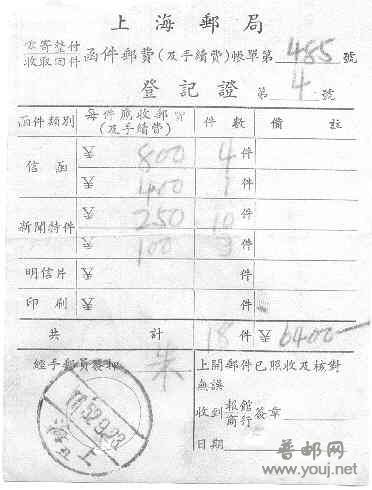 上海郵局
零寄整付
收取回件 函件郵費(及手續費)帳單第485號
登記證 第4號
函件類別 每件應收郵費(及手續費) 件數 備註
信函 ¥ 800 4件
¥ 400 1件
新聞特件 ¥ 250 10件
¥ 100 3件
明信片 ¥ 件
印刷 ¥ 件
共計 18件 ¥ 6400—
經手郵員簽押 朱
上開郵件已照收及核對
無誤
收到 報館 商行 簽章
日期
上海
普邮网
www.youj.net